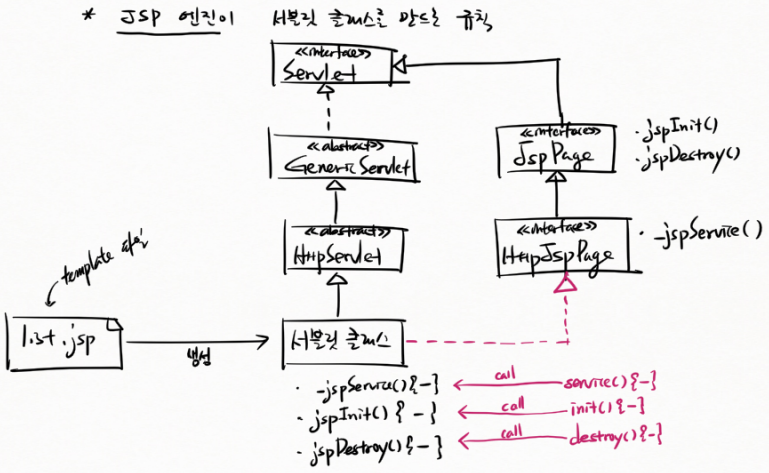 * JSP 엔진이 서블릿 클래스를 만드는 규칙
<<interface>>
Servlet
<<abstract>>
GenericServlet
<<interface>>
JspPage
· jspInit()
· jspDestroy()
<<abstract>>
HttpServlet
<<interface>>
HttpJspPage
· _jspService()
template 파일
list.jsp
생성
서블릿 클래스
· _jspService(){-}
call
service(){-}
· jspInit(){-}
call
init(){-}
· jspDestroy(){-}
call
destroy(){-}